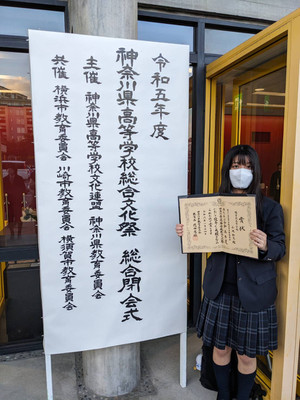 令和五年度
神奈川県高等学校総合文化祭 総合閉会式
主催 神奈川県高等学校文化連盟 神奈川県教育委員会
共催 横浜市教育委員会 川崎市教育委員会 横須賀市教育委員会
賞状